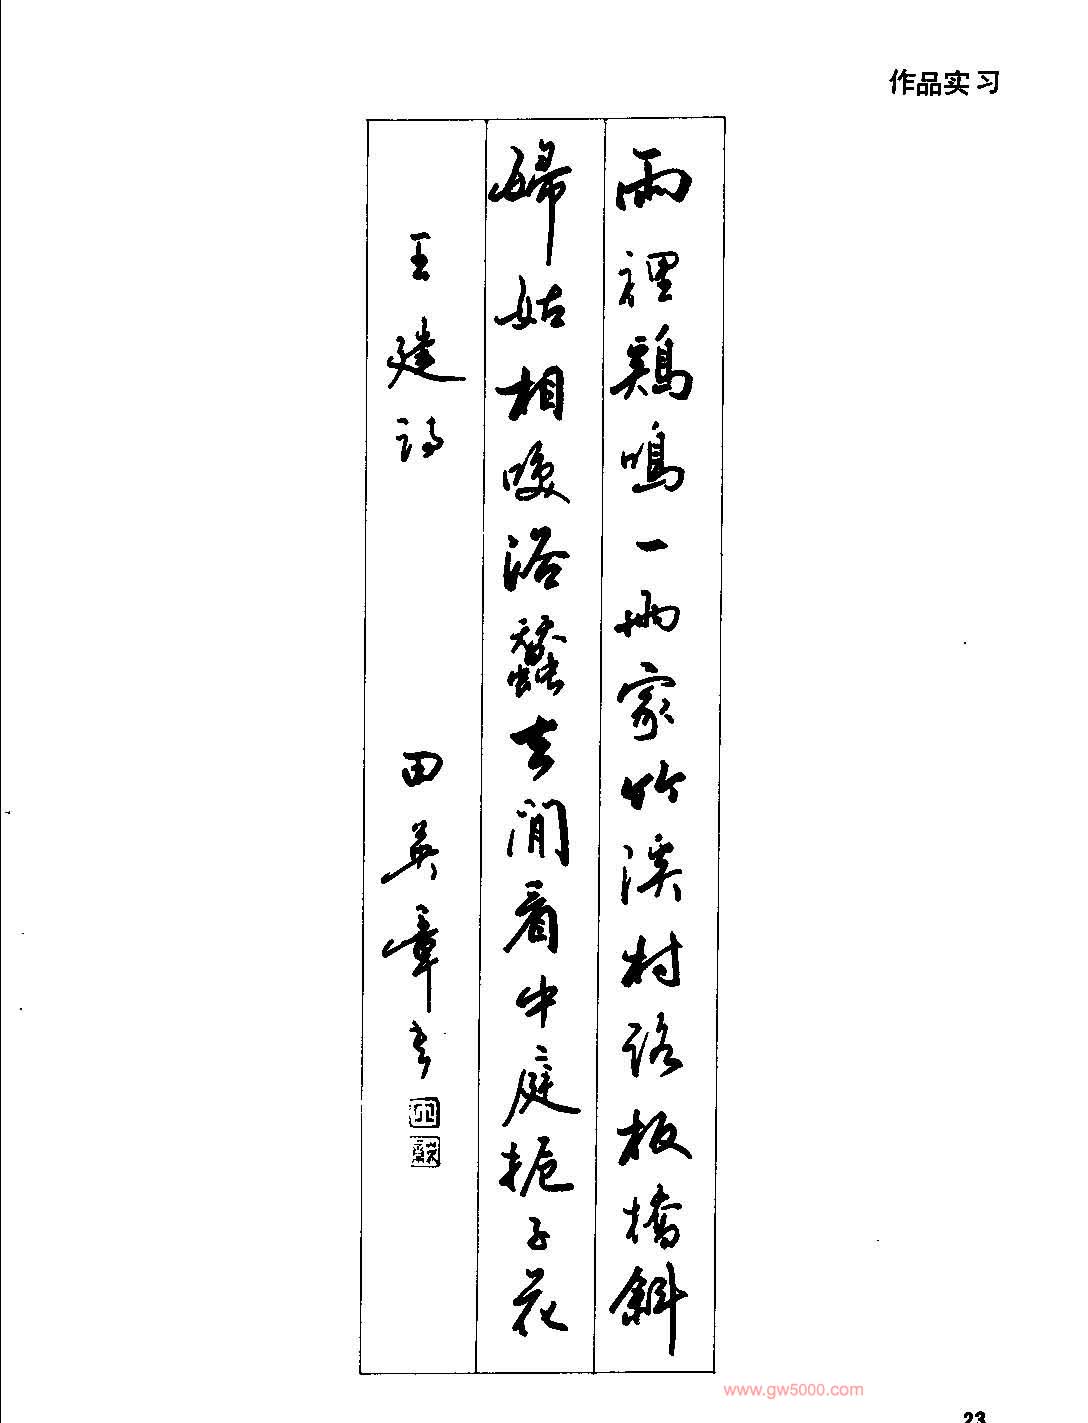 作品实习
雨裡鷄鳴一兩家竹溪村路板橋斜
婦姑相喚浴蠶去閒看中庭梔子花
王建詩
田英章书
www.gw5000.com
23